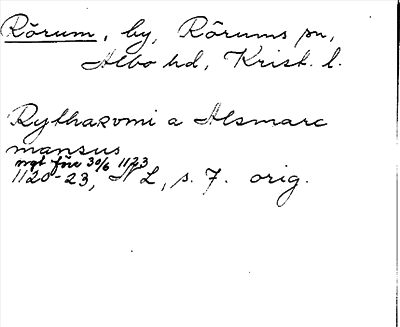 Rörum, by, Rörums sn,
Albo hd, Krist. l.
Rytharomi a Alsmarc
mansus
ngt före 30/6 1123
1120-23, N L, s. 7. orig.